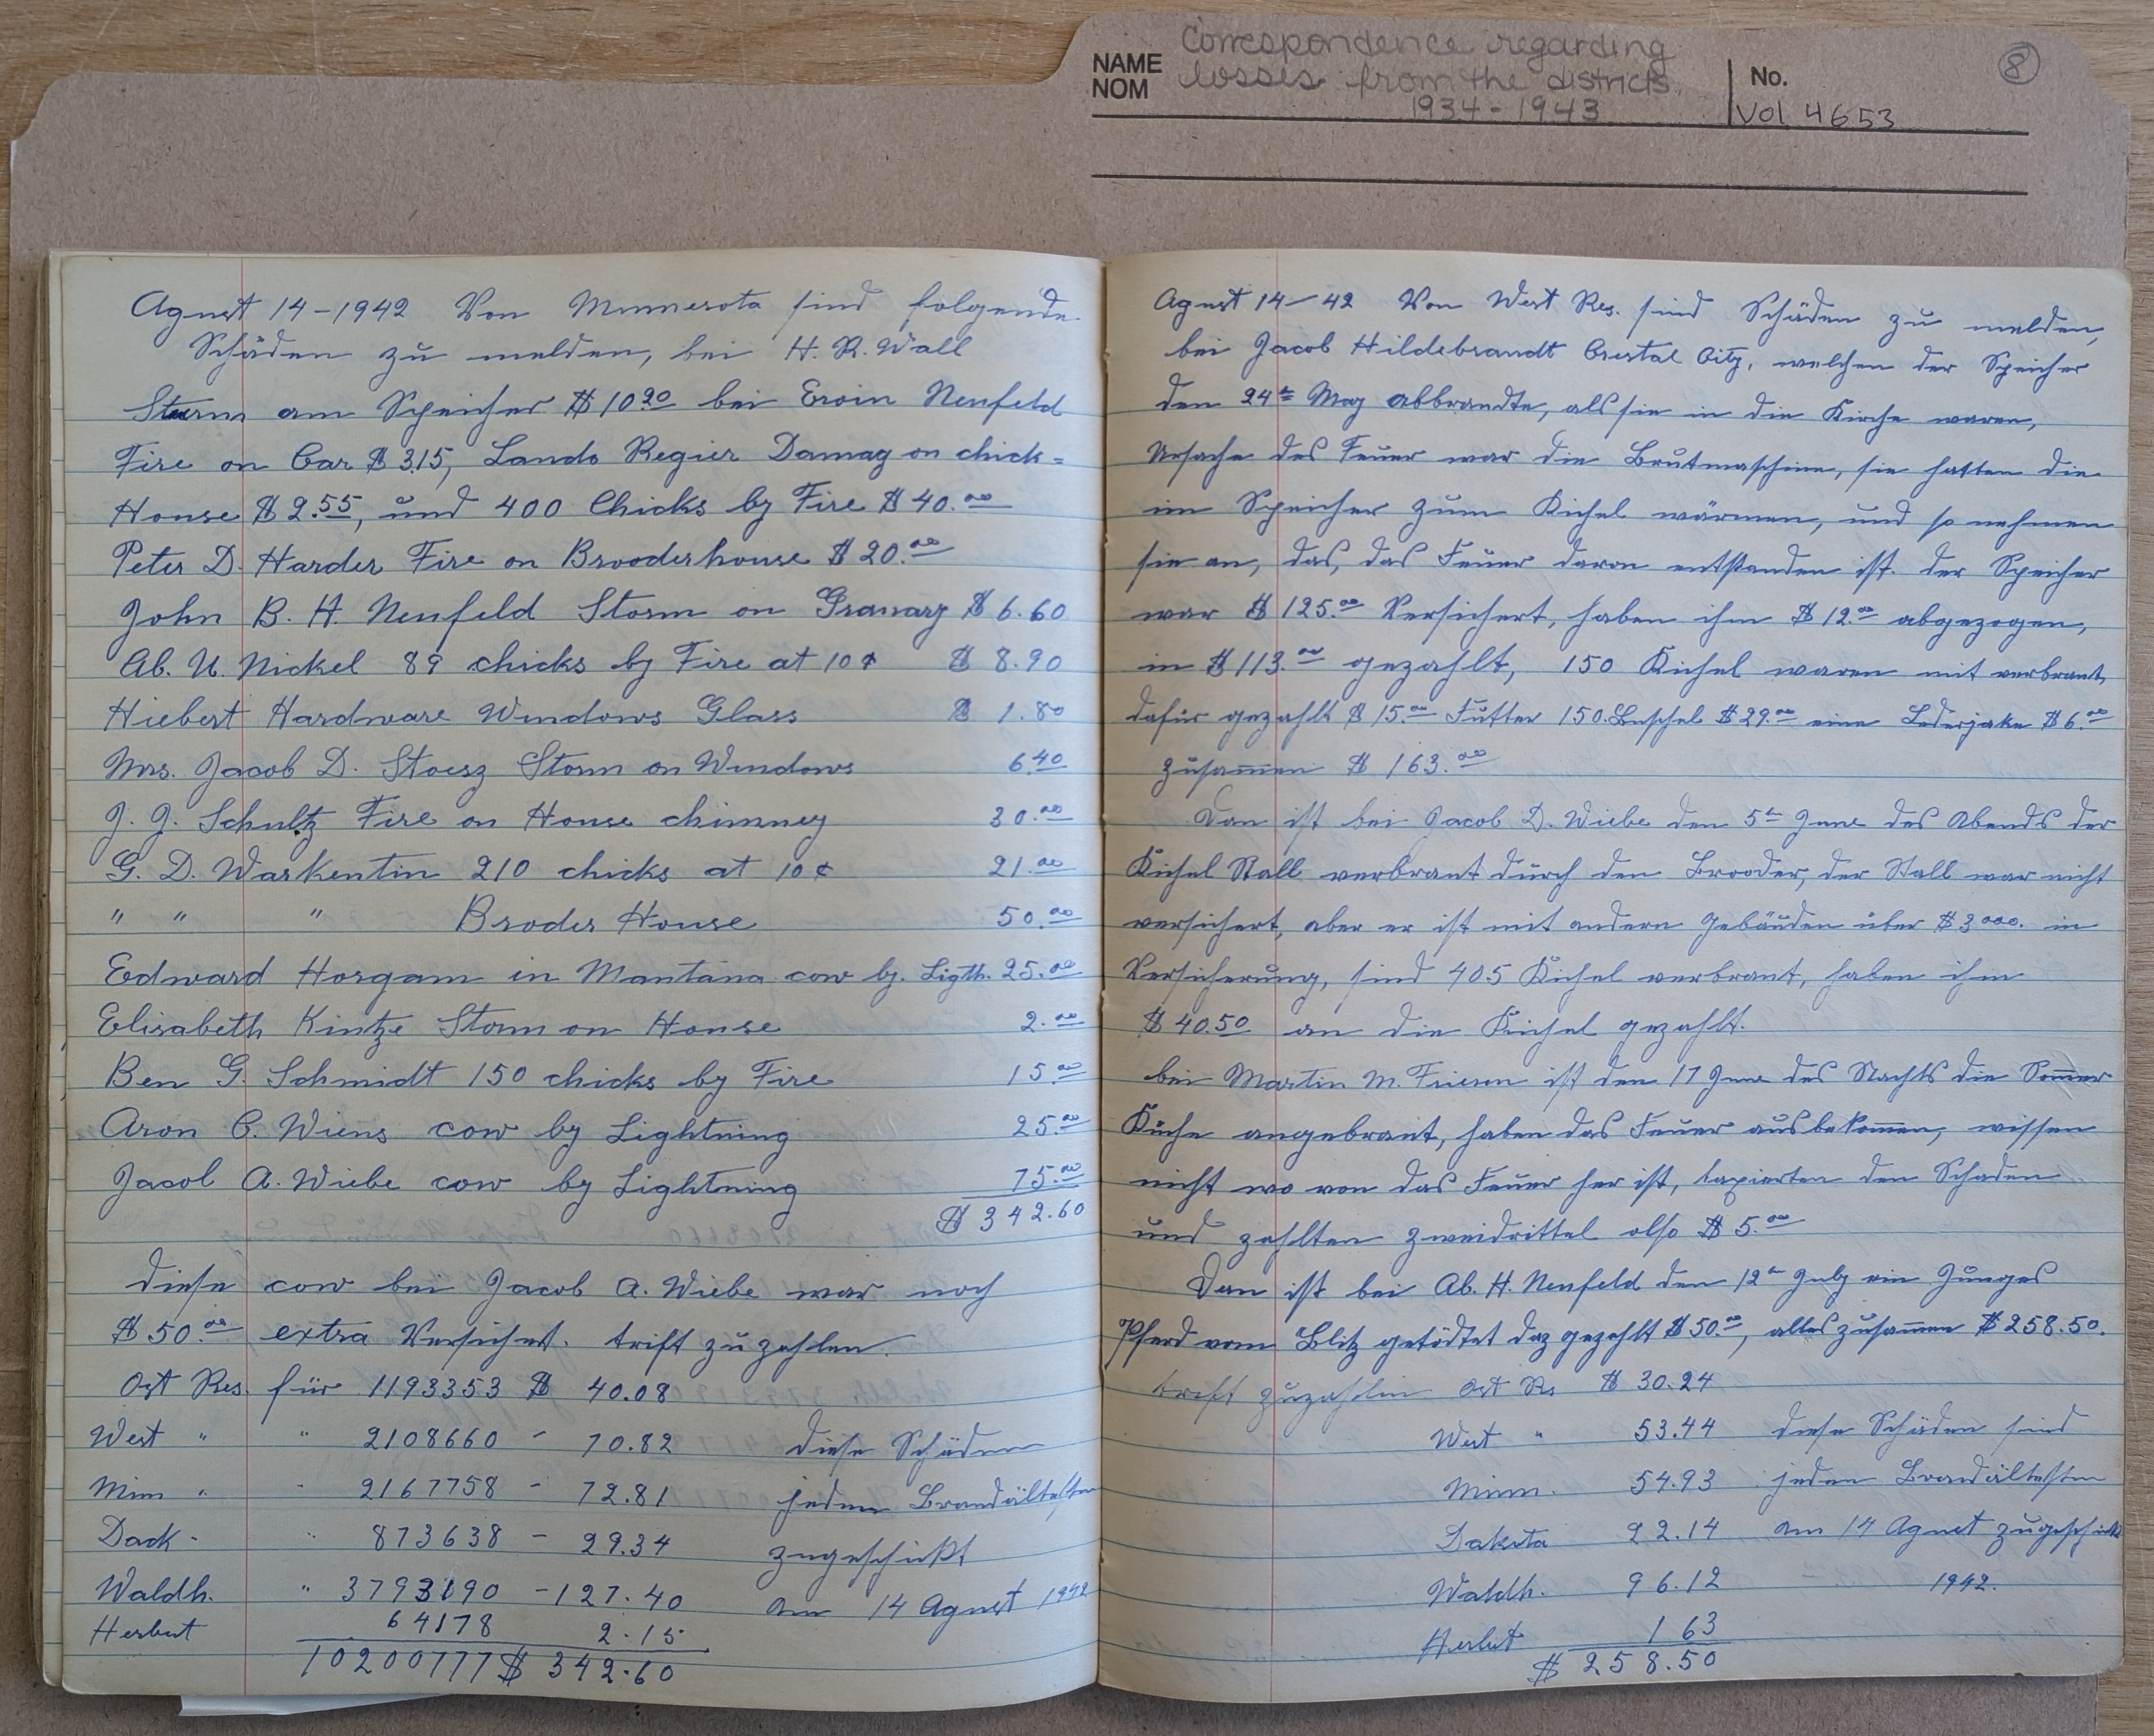 Correspondence regarding
NAME losses from the districts
NOM 1934-1943
No.
Vol 4653
8
Agust 14-1942 Von Minnesota sind folgende
Schäden zu melden, bei H. R. Wall
Sturm am Speicher $ 10.20 bei Ervin Neufeld
Fire on Car $ 3.15, Lando Regier Damag on chick=
House $ 2.55, und 400 Chicks by Fire $ 40.00
Peter D. Harder Fire on Brooderhouse $ 20.00
John B. H. Neufeld Storm on Granary $ 6.60
Ab. U. Nickel 89 chicks by Fire at 10 ¢ $ 8.90
Hiebert Hardware Windows Glass $ 1.80
Mrs. Jacob D. Stoesz Storm on Windows 6.40
J. J. Schultz Fire on House chimney 30.00
G. D. Warkentin 210 chicks at 10 ¢ 21.00
" " " Broder House 50.00
Edward Horgam in Mantana cow by. Ligth. 25.00
Elisabeth Kintze Storm on House 2.00
Ben G. Schmidt 150 chicks by Fire 15.00
Aron C. Wiens cow by Lightning 25.00
Jacob A. Wiebe cow by Lightning 75.00
$ 342.60
diese cow bei Jacob A. Wiebe war noch
$ 50.00 extra Versichert. trift zu zahlen.
Ost Res. für 1193353 $ 40.08
West " " 2108660 - 70.82 diese Schäden
Minn " " 2167758 - 72.81 jedem Brandältesten
Dack - " 873638 - 29.34 zugeschikt
Waldh. " 3793190 - 127.40 am 14 Agust 1942
Herbert 64178 2.15
10200777 $ 342.60
Agust 14-42 Von West Res. sind Schäden zu melden,
bei Jacob Hildebrandt Crestal City, welchen der Speicher
den 24te May abbrandte, als sie in die Kirche waren,
Ursache des Feuer war die Brutmaschine, sie hatten die
im Speicher zum Kichel wärmen, und so nehmen
sie an, das, das Feuer davon entstanden ist. der Speicher
war $ 125.00 Versichert, haben ihm $ 12.00 abgezogen,
in $ 113.00 gezahlt, 150 Kichel waren mit verbrant,
dafür gezahlt $ 15.00 Futter 150. Buschel $ 29.00 eine Lederjake $ 6.00
zusammen $ 163.00
Dan ist bei Jacob D. Wiebe den 5te June des Abends der
Kichel Stall verbrant durch den Brooder, der Stall war nicht
versichert, aber er ist mit andern Gebäuden über $ 3000. in
Versicherung, sind 405 Kichel verbrant, haben ihm
$ 40.50 an die Kichel gezahlt.
bei Martin M. Friesen ist den 17 June des Nachts die Sommer
Küche angebrant, haben das Feuer aus bekommen, wissen
nicht wo von das Feuer her ist, taxierten den Schaden
und zahlten zweidrittel also $ 5.00
Dan ist bei Ab. H. Neufeld den 12te July ein Junges
Pferd vom Blitz getödtet daz gezahlt $ 50.00, alles zusammen $ 258.50.
trift zuzahlin Ost Rs $ 30.24
West " 53.44 diese Schäden sind
Minn. 54.93 jeden Brandältesten
Dakota 22.14 am 14 Agust zugeschickt
Waldh. 96.12 1942.
Herbert 1 63
$ 258.50